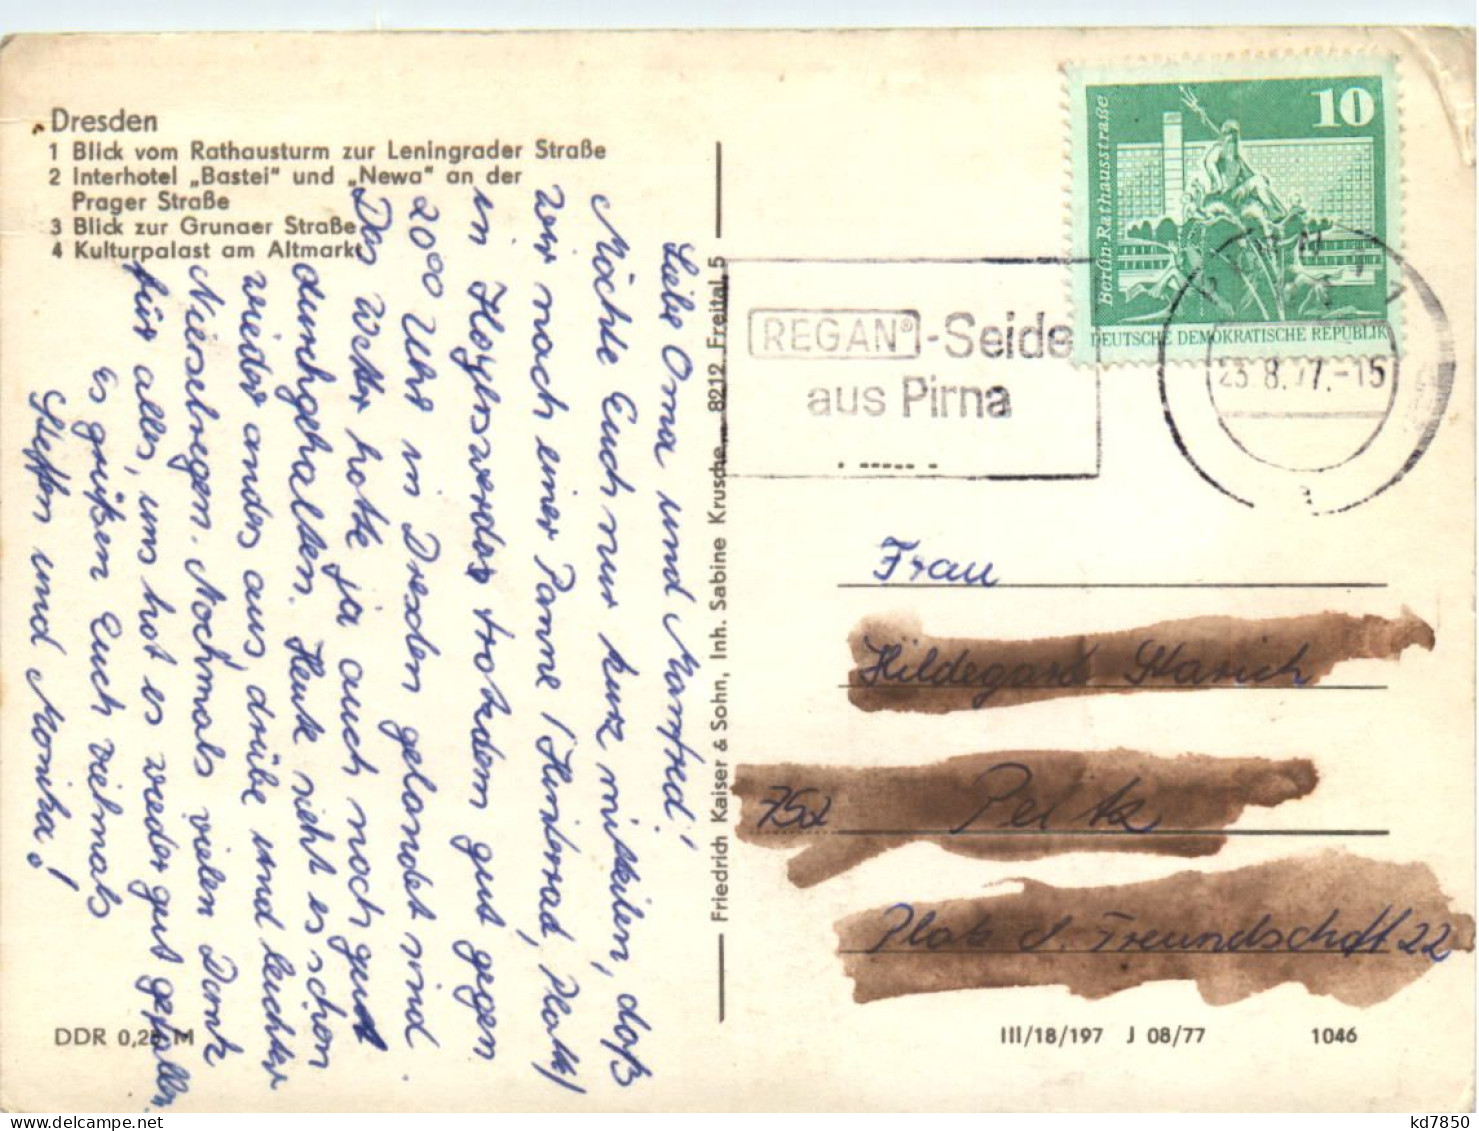 Dresden
1 Blick vom Rathausturm zur Leningrader Straße
2 Interhotel „Bastei" und „Newa" an der
Prager Straße
3 Blick zur Grunaer Straße
4 Kulturpalast am Altmarkt
Liebe Oma und Manfred!
Möchte Euch nur kurz mitteilen, daß
wir nach einer Panne (Hinterrad, Platt)
in Hoyerswerda trotzdem gut gegen
20⁰⁰ Uhr in Dresden gelandet sind.
Das Wetter hatte ja auch noch gut
durchgehalten. Heute sieht es schon
wieder anders aus, drübe und leichter
Nieselregen. Nochmals vielen Dank
für alles, uns hat es wieder gut gefallen.
Es grüßen Euch vielmals
Steffen und Monika!
DDR 0,25 M
Friedrich Kaiser & Sohn, Inh. Sabine Krusche, 8212 Freital 5
REGAN®-Seide
aus Pirna
10
Berlin-Rathausstraße
DEUTSCHE DEMOKRATISCHE REPUBLIK
23.8.77.-15
a
Frau
Hildegard
752 Peitz
Platz d. Freundschaft 22
III/18/197 J 08/77 1046
kd7850